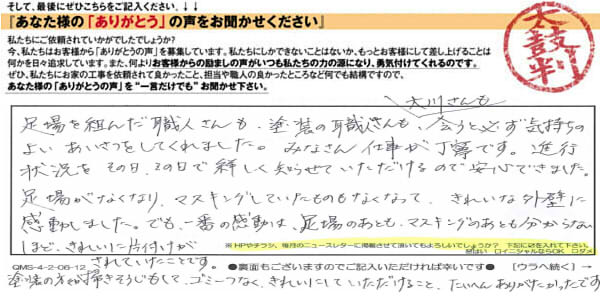 そして、最後にぜひこちらをご記入ください。↓↓
『あなた様の「ありがとう」の声をお聞かせください』
太鼓判
私たちにご依頼されていかがでしたでしょうか?
今、私たちはお客様から「ありがとうの声」を募集しています。私たちにしかできないことはないか、もっとお客様にして差し上げることは
何かを日々追求しています。また、何よりお客様からの励ましの声がいつも私たちの力の源になり、勇気付けてくれるのです。
ぜひ、私たちにお家の工事を依頼されて良かったこと、担当や職人の良かったところなど何でも結構ですので、
あなた様の「ありがとうの声」を"一言だけでも"お聞かせ下さい。
大川さんも
足場を組んだ職人さんも、塗装の職人さんも、会うと必ず気持ちの
よいあいさつをしてくれました。みなさん仕事が丁寧です。進行
状況をその日その日で詳しく知らせていただけるので安心できました。
足場がなくなり、マスキングしていたものもなくなって、きれいな外壁に
感動しました。でも、一番の感動は、足場のあとも、マスキングのあとも分からない
ほど、きれいに片付けが
されていたことです。
※HPやチラシ、毎月のニュースレターに掲載させて頂いてもよろしいでしょうか? 下記に☑を入れて下さい。
ロイニシャルならOK ロダメ
QMS-4-2-06-12
●裏面もございますのでご記入いただければ幸いです● [ウラへ続く]→
塗装の方が掃きそうじもして、ゴミ一つなく、きれいにしていただけること、たいへんありがたかったです